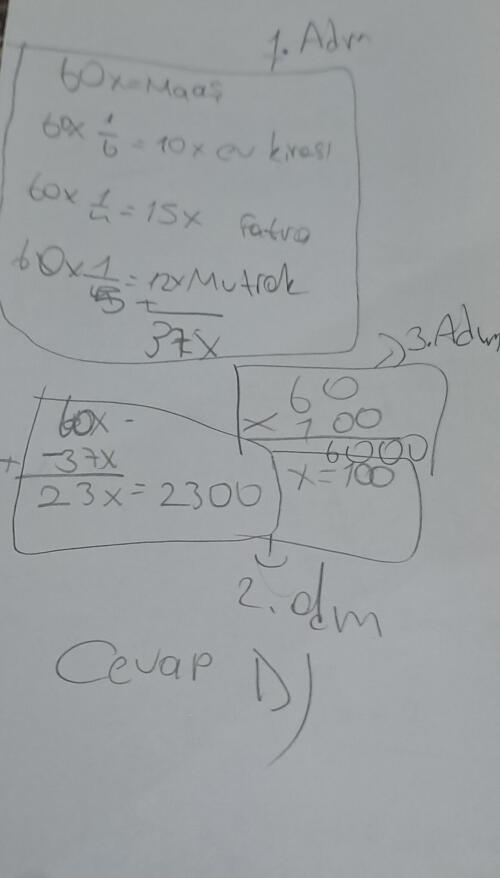 1. Adm
60x=Maaş
60x 1/6 = 10x ev kirası
60x 1/4 = 15x Fatura
60x 1/5 = 12x Mutfak
+
37x
3. Adm
60
x 100
6000
x=100
60x -
+ -37x
23x = 2300
2. dm
Cevap D)